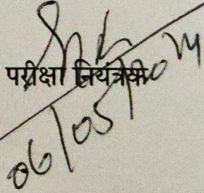 परीक्षा नियंत्रक
06/05/2014